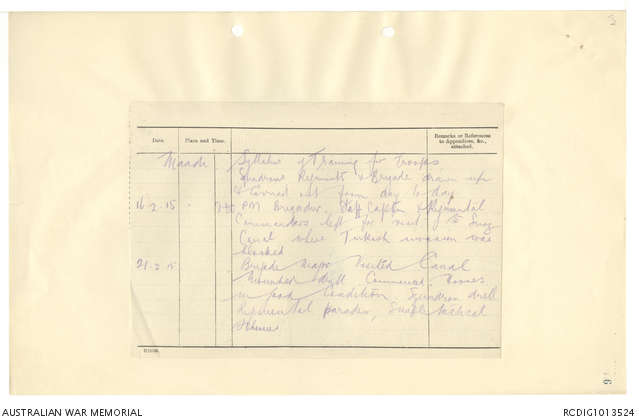 Date.
Place and Time.
Remarks or References
to Appendices, &c.,
attached.
Maadi Syllabus of Training for Troops
Squadrons Regiments & Brigade drawn up
& carried out from day to day
16.2.15 " 7 PM Brigadier, Staff Captain & Regimental
Commanders left for visit to Suez
Canal where Turkish invasion was
blocked
21.2.15 Brigade Major visited Canal
Mounted drill Commenced, Horses
in good Condition, Squadron drill
Regimental parades, Simple tactical
Schemes
AUSTRALIAN WAR MEMORIAL
RCDIG1013524